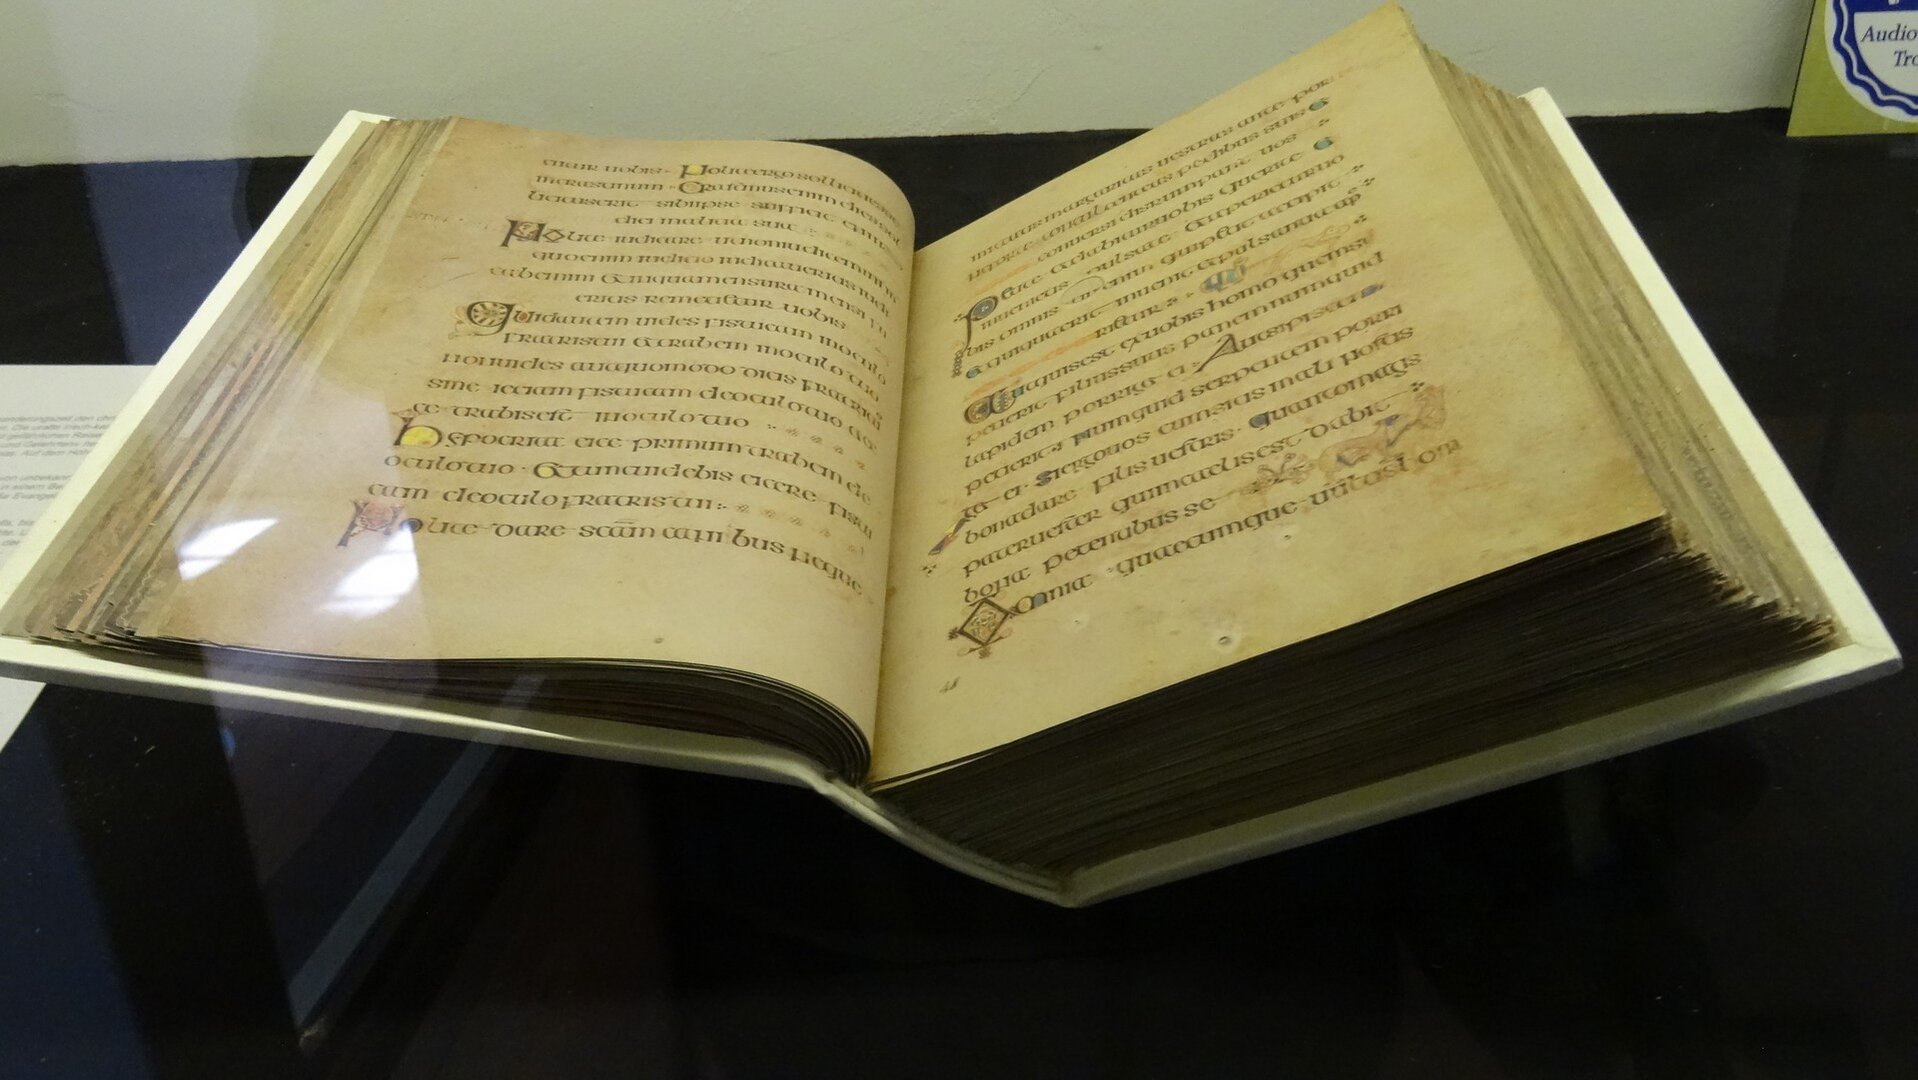 citur uobis · Nolite ergo solliciti esse
incrastinum · Crastinus enim dies sol
sibi ipse sufficit enim
diei malitia sua
Nolite iudicare ut non iudicemini in
quo enim iudicio iudicaueritis iudi
cabemini & in qua mensura mensi fu
eritis remetietur uobis
Quid autem uides fistucam in oculo
fratris tui & trabem in oculo tuo
non uides aut quomodo dicis fratri tuo
sine ieciam fistucam de oculo tuo
ce trabis est in oculo tuo
primum trabem de
oculo tuo · & eicere fistu
cam de oculo fratris tui
Nolite dare scm canibus neque
mitatis margaritas uestras ante por
pedibus suis &
conuersi disrumpant uos
Petite & dabitur uobis querite &
pulsate & aperietur uo
bis omnis enim qui petit accipit
& qui querit inuenit & pulsanti ap
rietur
Aut quis est ex uobis homo quem si
petierit filius suus panem numquid
lapidem porriget ei Aut si piscem
petierit numquid serpentem porri
get ei · Si ergo uos cum sitis mali nostis
bona dare filiis uestris · quanto magis
pater uester qui in caelis est dabit
bona petentibus se
Omnia quaecumque uultis
48
Audio